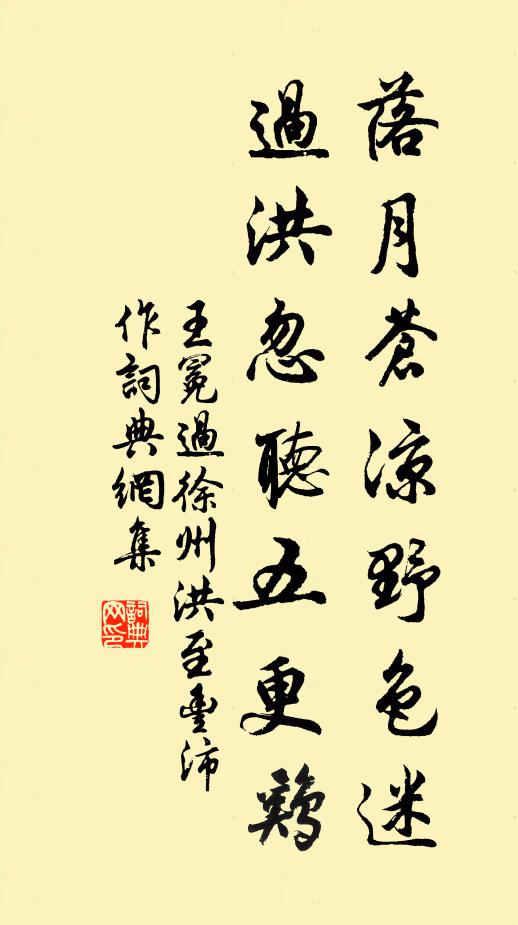 落月蒼涼野色迷
過洪忽聽五更鷄
王冕過徐州洪至豐沛
作詞典網集
詞典网印